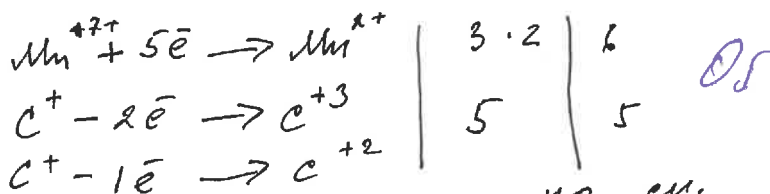 Mn⁺⁷⁺ + 5ē → Mn²⁺ | 3 · 2 | 6
C⁺ - 2ē → C⁺³ | 5 | 5
C⁺ - 1ē → C⁺²